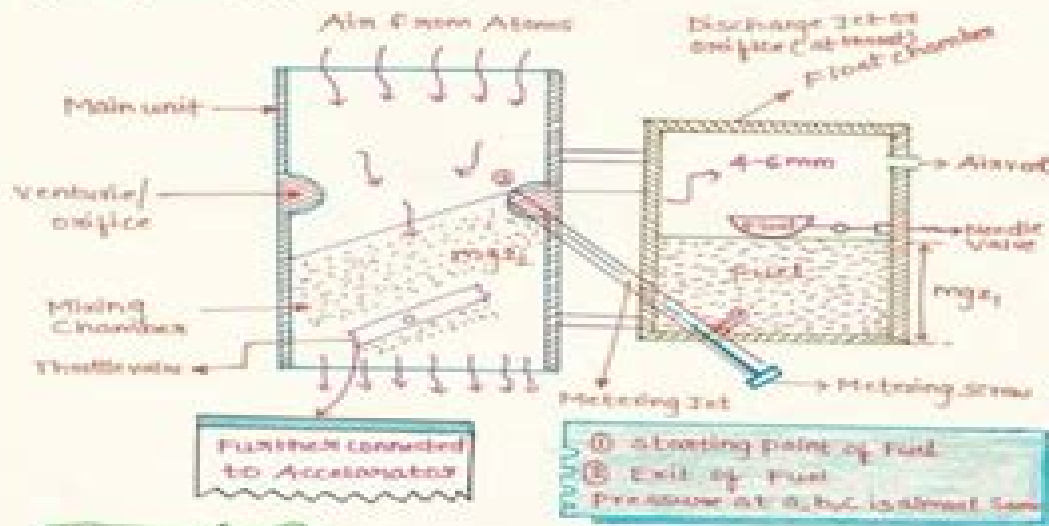 Air from Atoms
Discharge Jet or
orifice (at throat)
Float chamber
Main unit
4-6mm
Air vent
Venturie/
orifice
②
Float
Needle
Valve
mgz₂
Fuel
mgz₁
Mixing
Chamber
Throttle valve
Metering Jet
Metering screw
Further connected
to Accelarator
① Starting point of Fuel
② Exit of Fuel
Pressure at a,b,c is almost Same